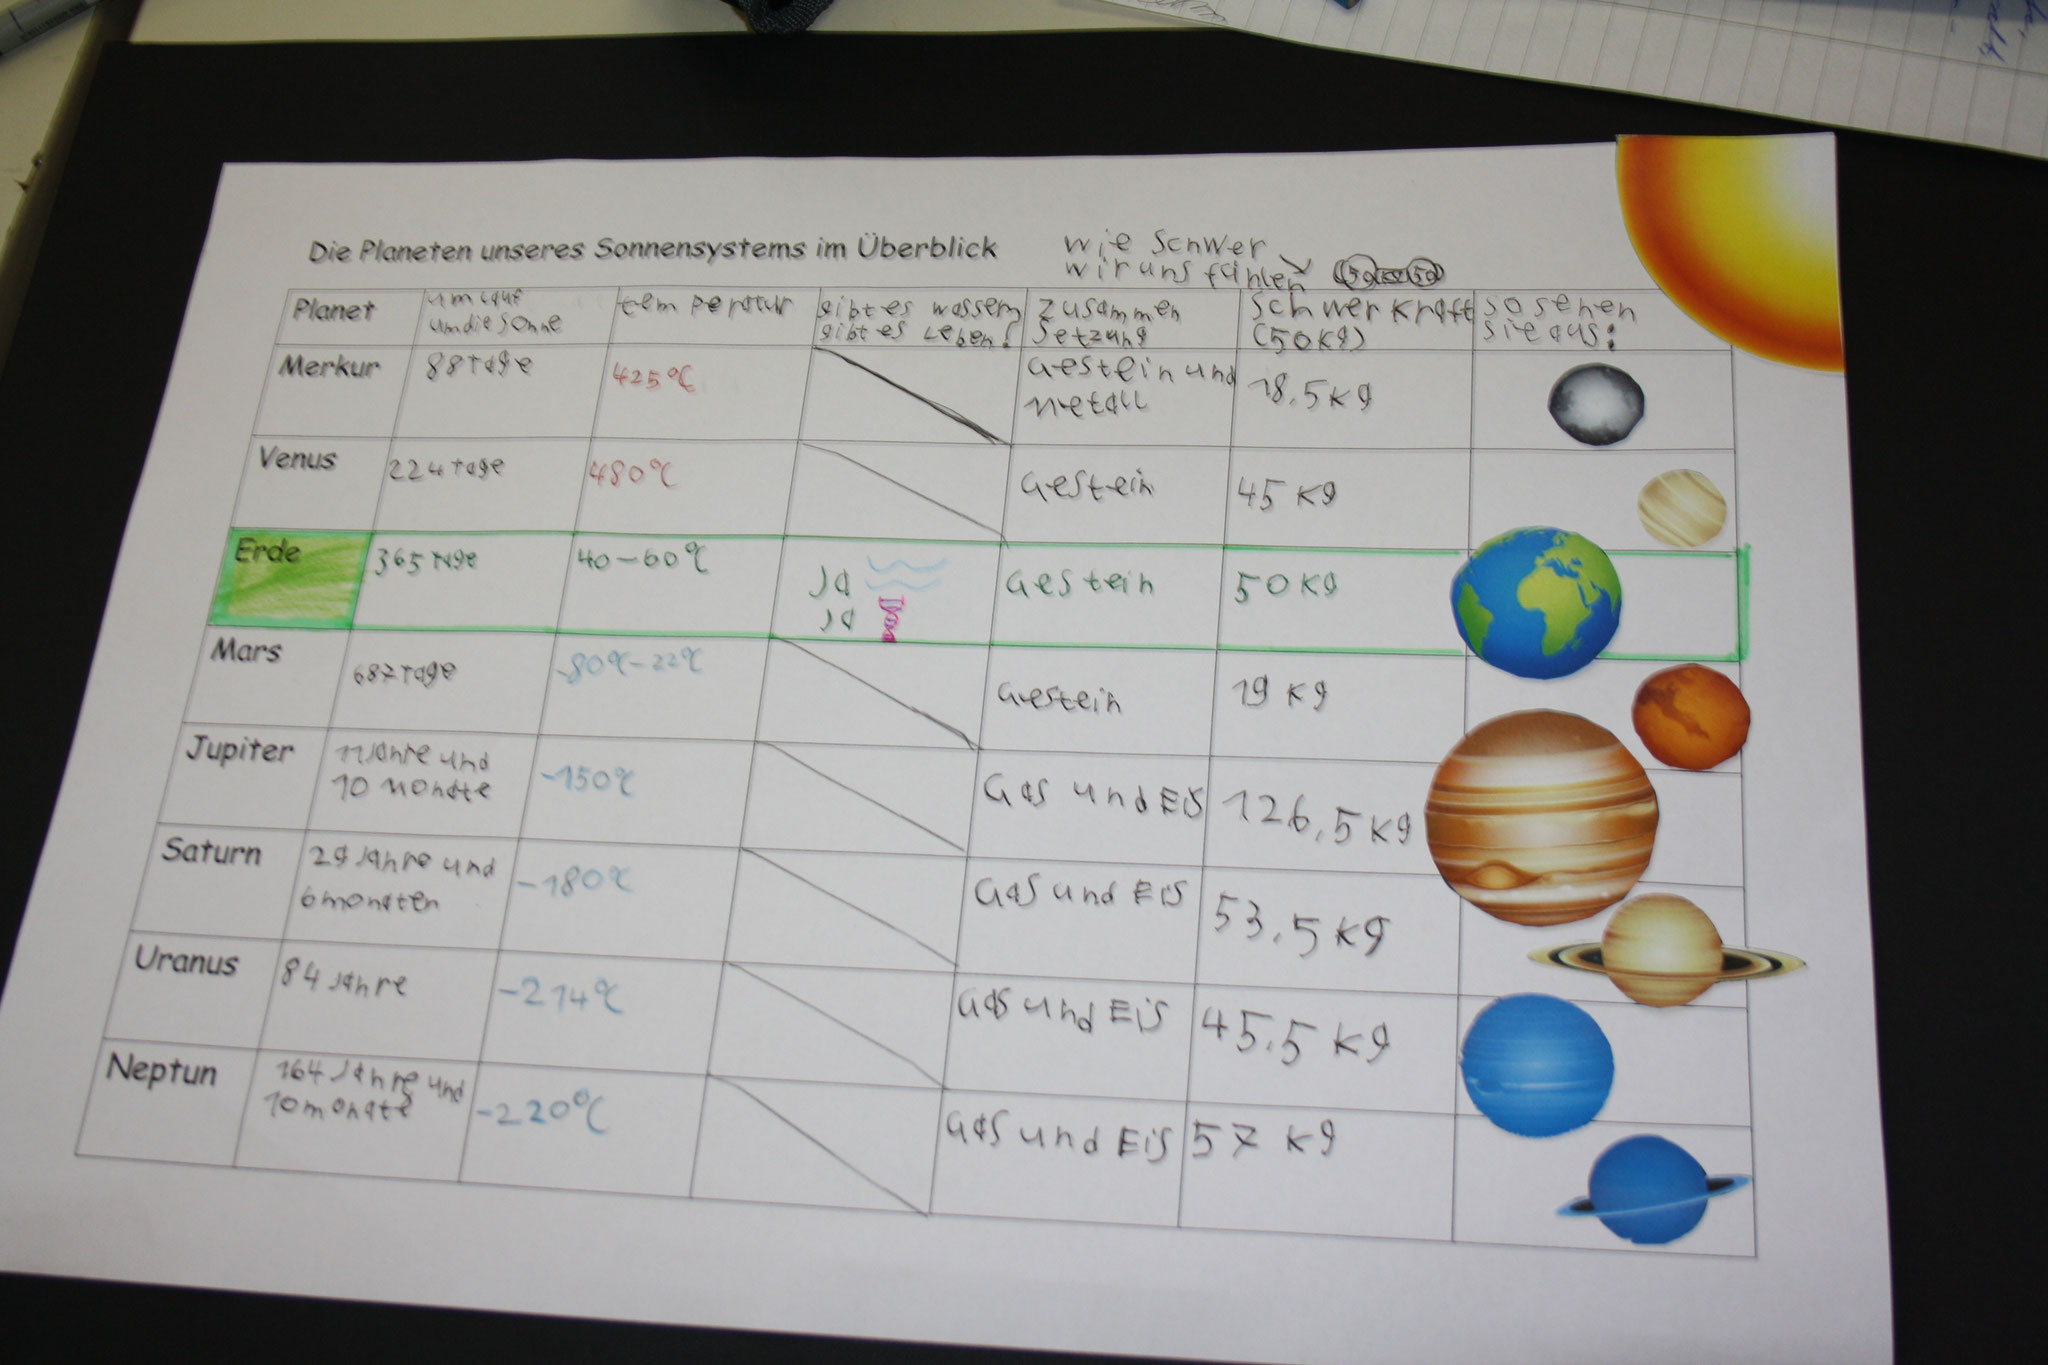 Die Planeten unseres Sonnensystems im Überblick
wie schwer
wir uns fühlen
Planet
umlauf
um die Sonne
temperatur
gibt es wasser
gibt es Leben?
Zusammen
setzung
Schwerkraft
(50Kg)
so sehen
sie aus:
Merkur
88 tage
425°C
Gestein und
Metall
18.5 Kg
Venus
224 tage
480°C
Gestein
45 Kg
Erde
365 tage
40-60°C
Ja
Ja
Gestein
50 Kg
Mars
687 tage
-80°C-22°C
Gestein
19 Kg
Jupiter
11 Jahre und
10 monate
-150°C
Gas und Eis
126.5 Kg
Saturn
29 Jahre und
6 monaten
-180°C
Gas und Eis
53.5 Kg
Uranus
84 Jahre
-214°C
Gas und Eis
45.5 Kg
Neptun
164 Jahre und
10 monate
-220°C
Gas und Eis
57 Kg